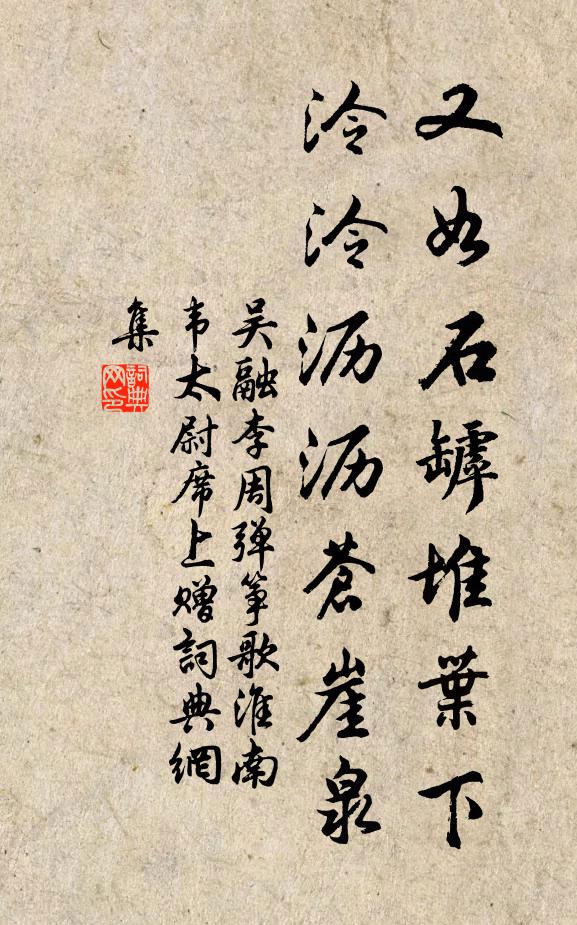 又如石罅堆葉下
泠泠沥沥蒼崖泉
吴融李周弹筝歌淮南
韦太尉席上赠詞典網
集
詞典網印